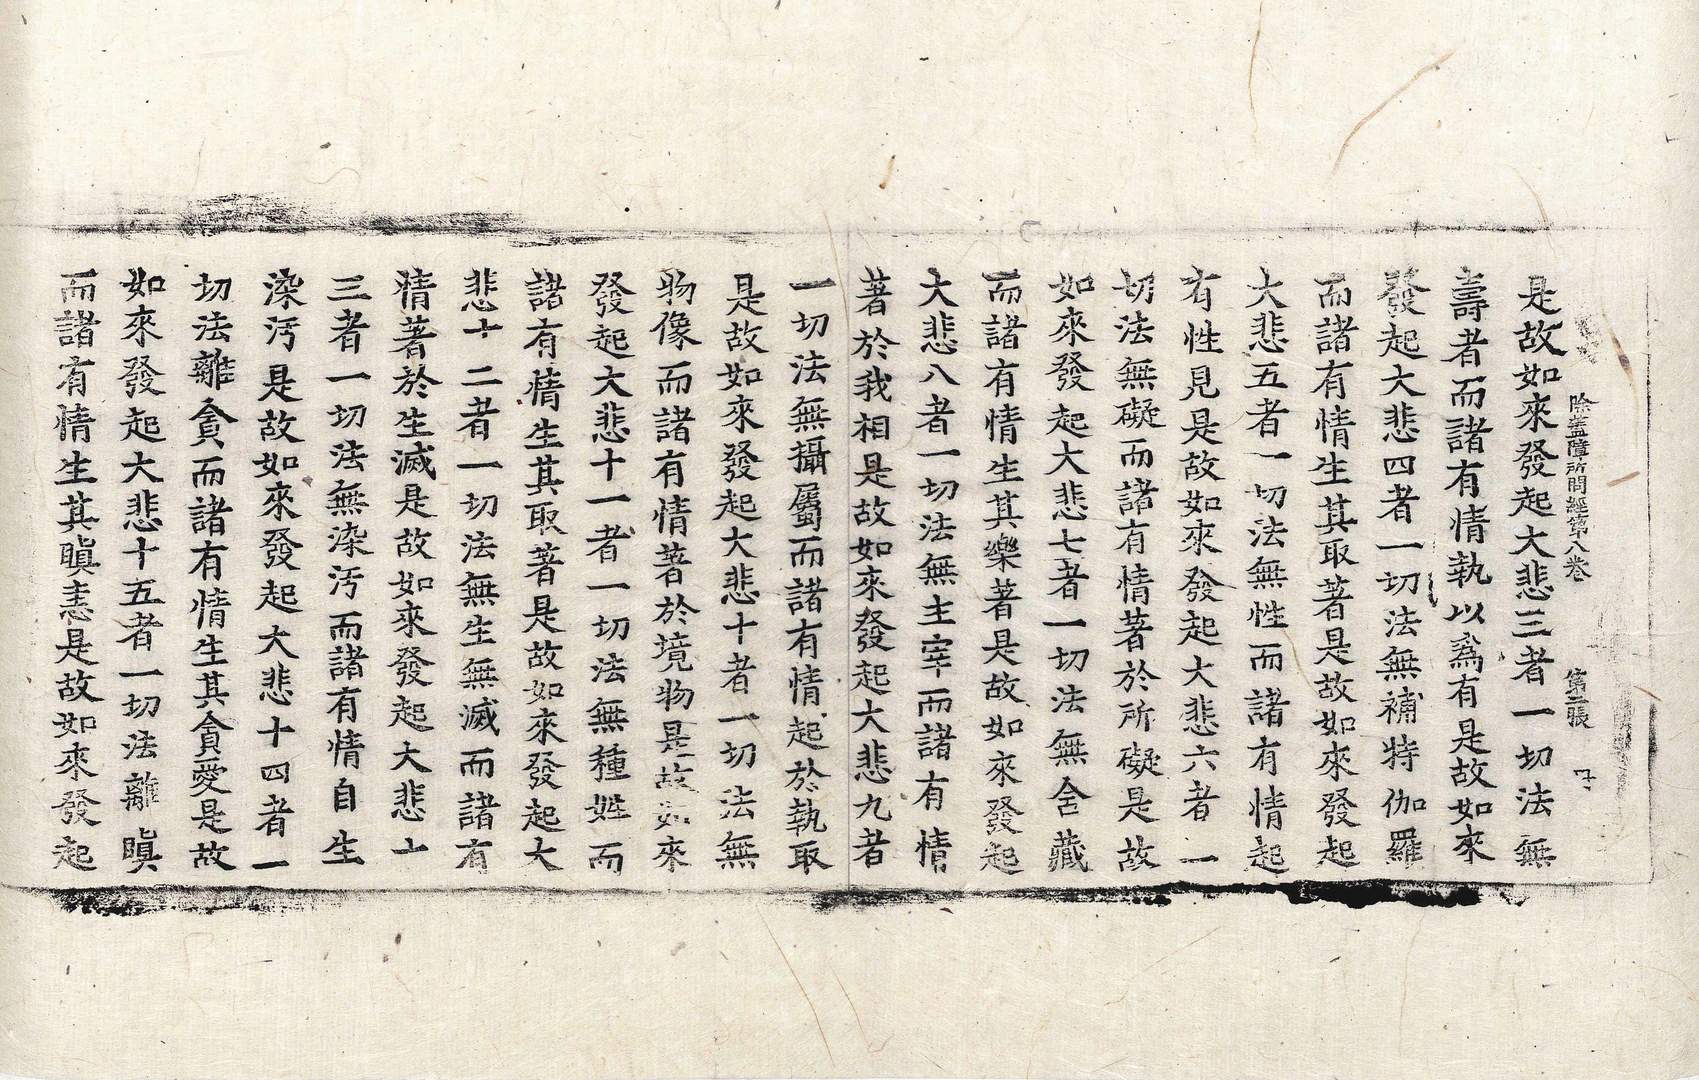 除蓋障所問經第八卷 第二張
是故如來發起大悲三者一切法無
壽者而諸有情執以爲有是故如來
發起大悲四者一切法無補特伽羅
而諸有情生其取著是故如來發起
大悲五者一切法無性而諸有情起
有性見是故如來發起大悲六者一
切法無礙而諸有情著於所礙是故
如來發起大悲七者一切法無舍藏
而諸有情生其樂著是故如來發起
大悲八者一切法無主宰而諸有情
著於我相是故如來發起大悲九者
一切法無攝屬而諸有情起於執取
是故如來發起大悲十者一切法無
物像而諸有情著於境物是故如來
發起大悲十一者一切法無種姓而
諸有情生其取著是故如來發起大
悲十二者一切法無生無滅而諸有
情著於生滅是故如來發起大悲十
三者一切法無染汚而諸有情自生
染汚是故如來發起大悲十四者一
切法離貪而諸有情生其貪愛是故
如來發起大悲十五者一切法離瞋
而諸有情生其瞋恚是故如來發起